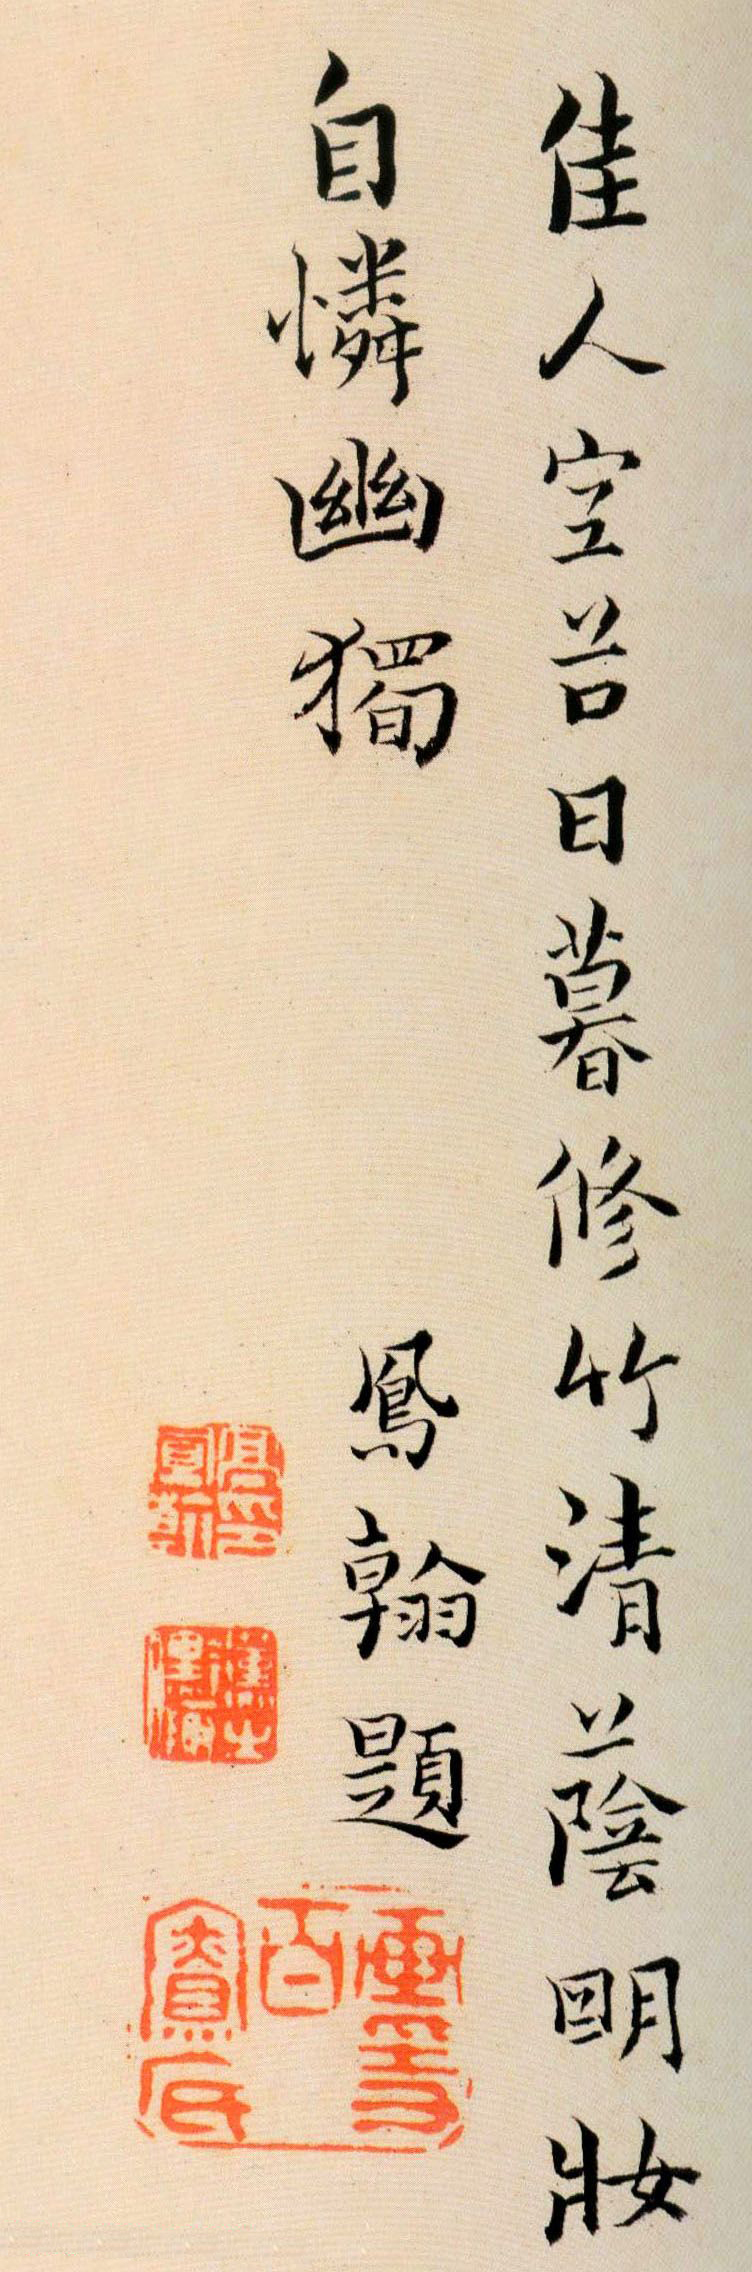 佳人空谷日暮修竹清蔭朙妝
自憐幽獨
鳳翰題